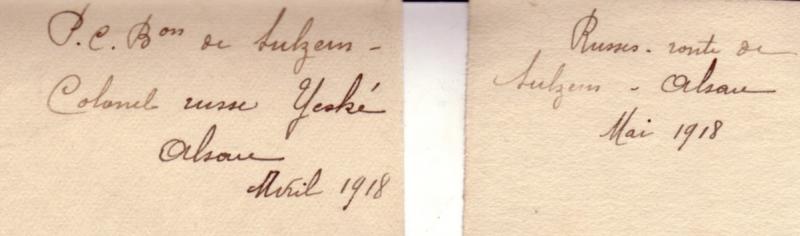 P.C. Bons de Sulzern -
Colonel russe Yeské
Alsace
Avril 1918
Russes - route de
Sulzern - Alsace
Mai 1918